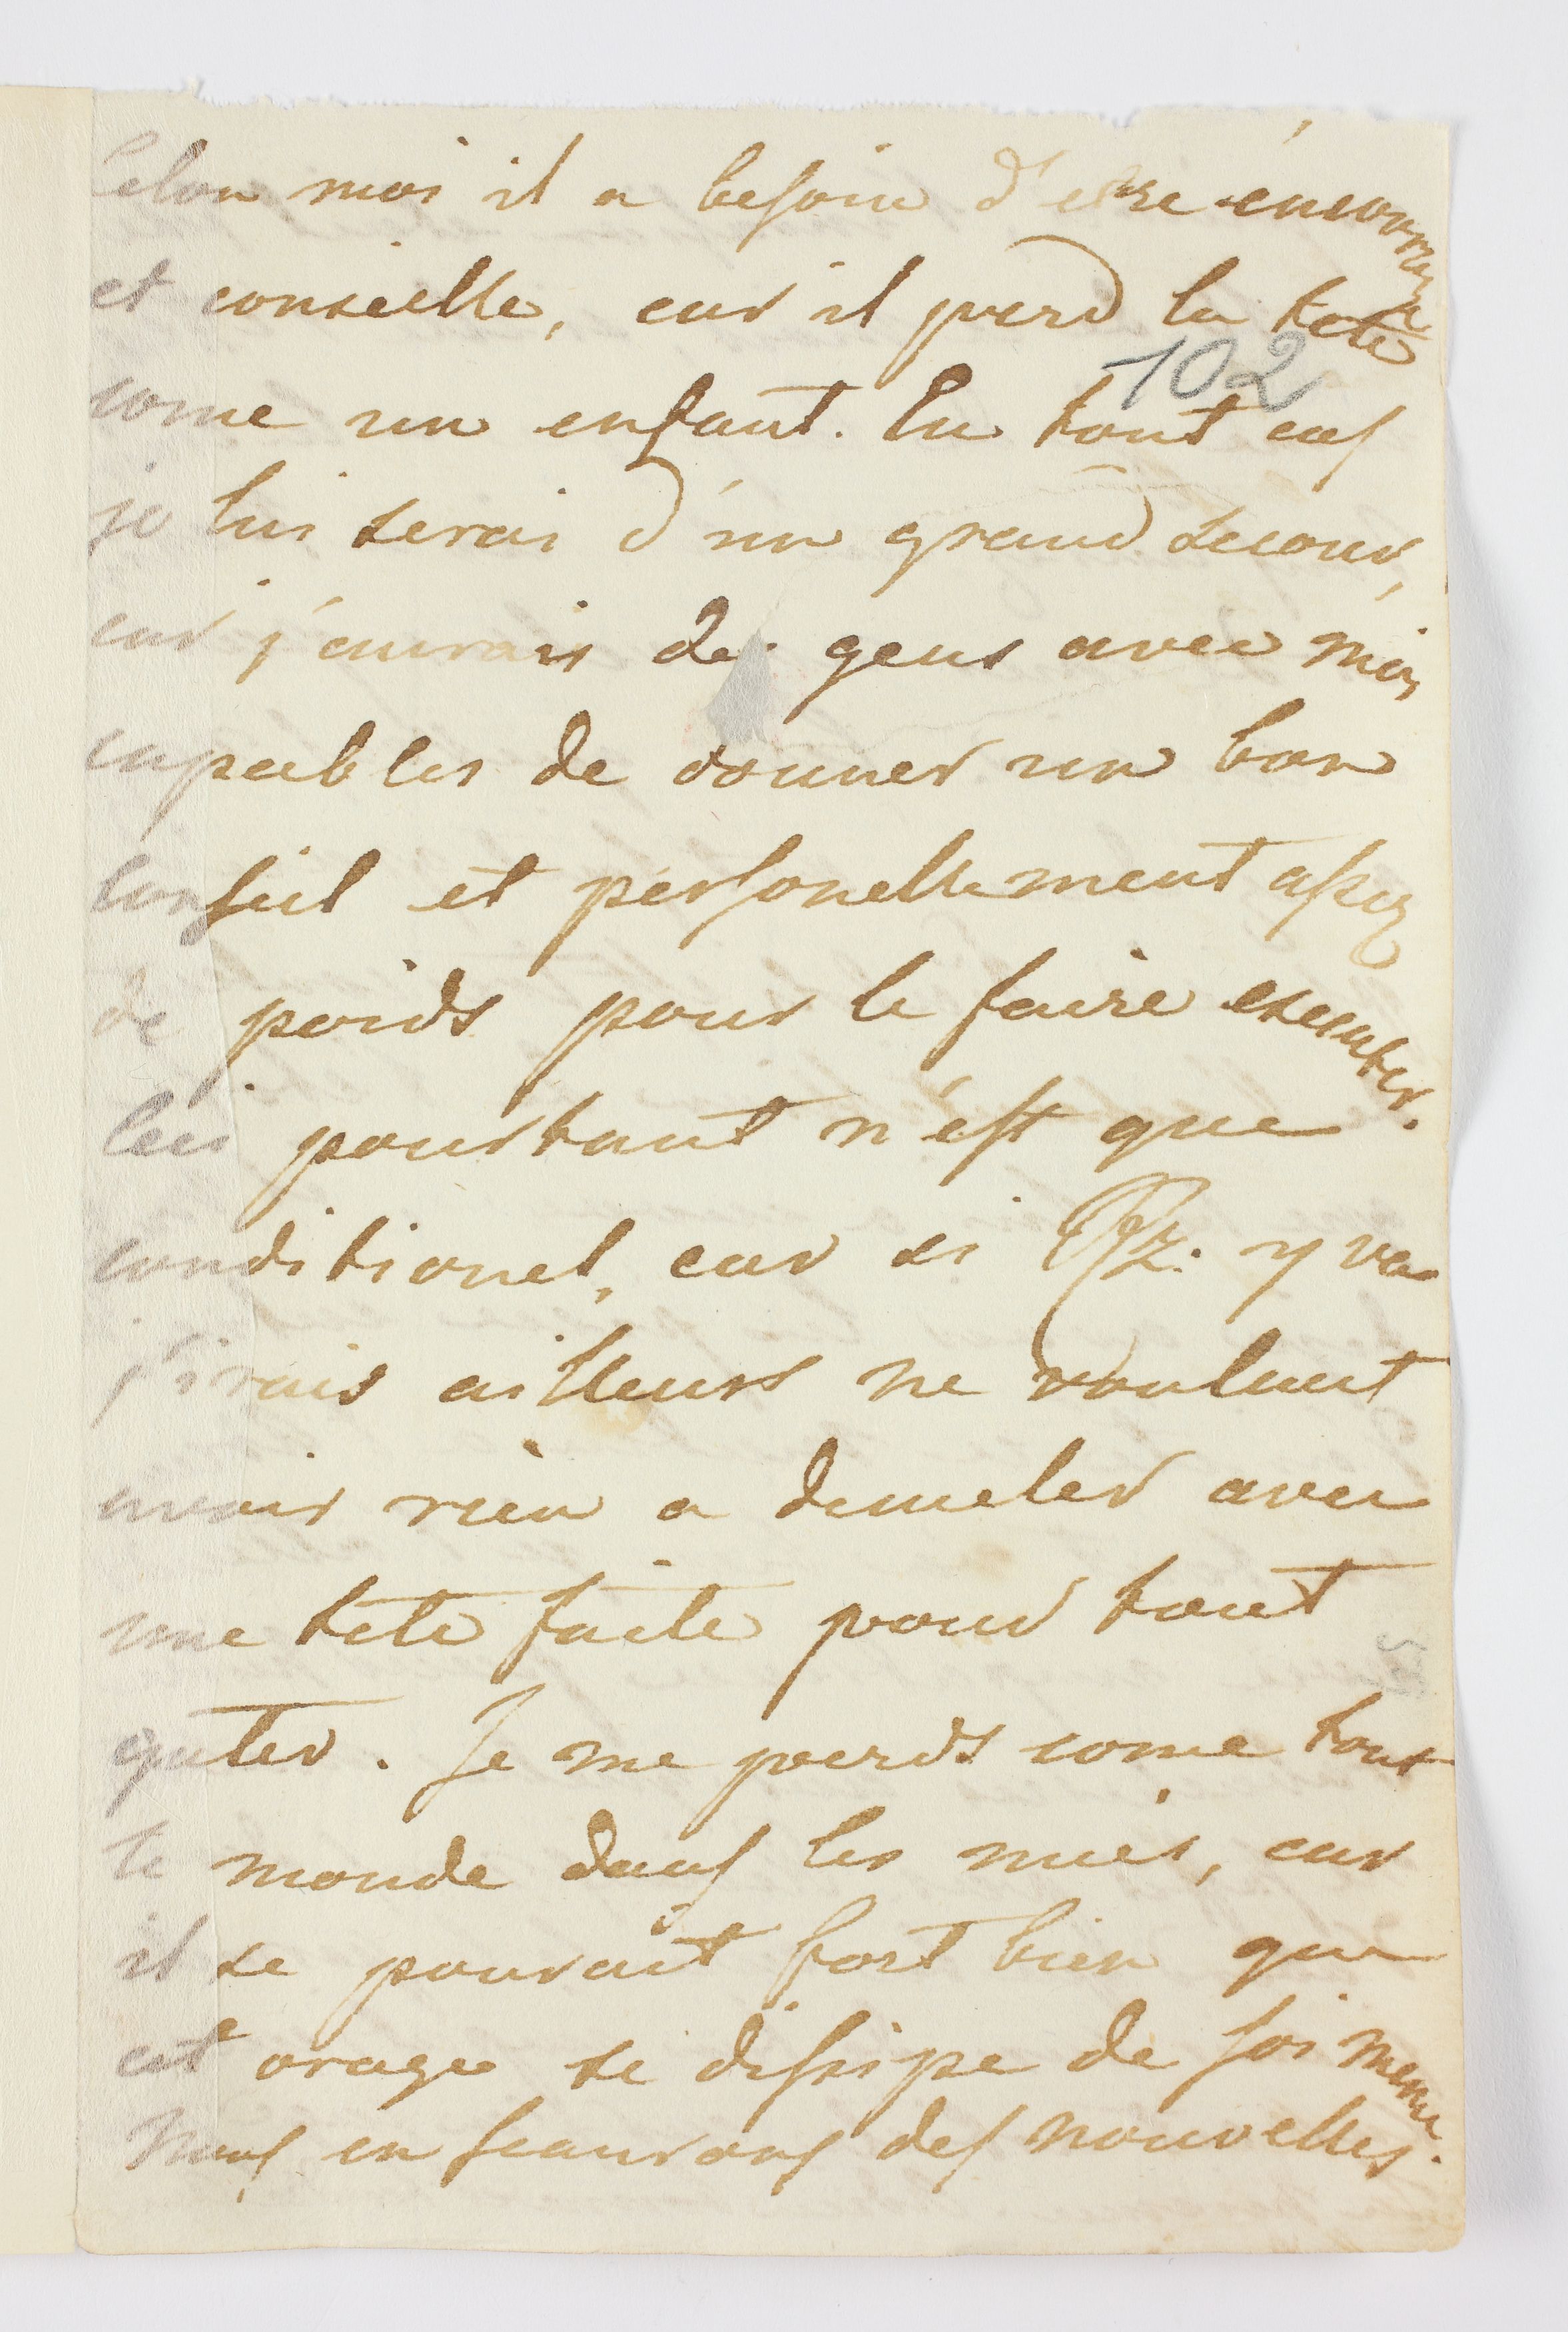 Selon moi il a besoin d'estre éncouragé
et conseille, car il perd la tete
102
come un enfant. En tout cas
je lui serai d'un grand secour,
car j'aurais des gens avec moi,
capables de donner un bon
conseil et personellement assez
de poids pour le faire executer.
Ceci pourtant n'est que
conditionel, car si Rz. y va
j'irais ailleurs ne voulant
avoir rien a demeler avec
une tete faite pour tout
gater. Je me perds come tout
le monde dans les nues, car
il se pourait fort bien que
cet orage se dissipe de soi meme.
Nous en scaurons des nouvelles.